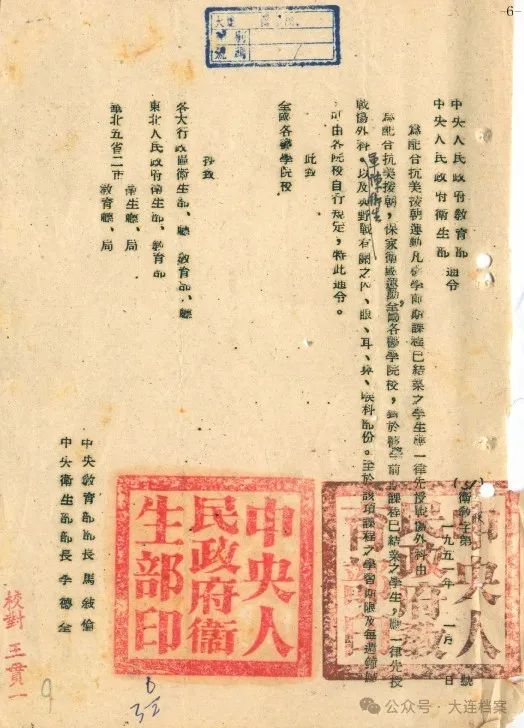 -6-
中央人民政府教育部
中央人民政府衞生部 通令
衞教字第 號
一九五 年 一月 日
爲配合抗美援朝運動凡醫學前期課程已結業之學生應一律先授戰傷外科由
爲配合抗美援朝,保家衞國運動全國各醫學院校,對於醫學前期課程已結業之學生,應一律先授
戰傷外科,軍陣衞生以及與野戰有關之內、眼、耳、鼻、喉科部份。至於該項課程之學習期限及每週鐘點
可由各院校自行規定,特此通令。
此致
全國各醫學院校
抄致
各大行政區衞生部、廳、教育部、廳
東北人民政府衞生部、教育部
華北五省二市
衞生廳、局
教育廳、局
中央教育部部長 馬敘倫
中央衞生部部長 李德全
中央人民政府衞生部印
校對 王貫一
9
公众号·大连档案